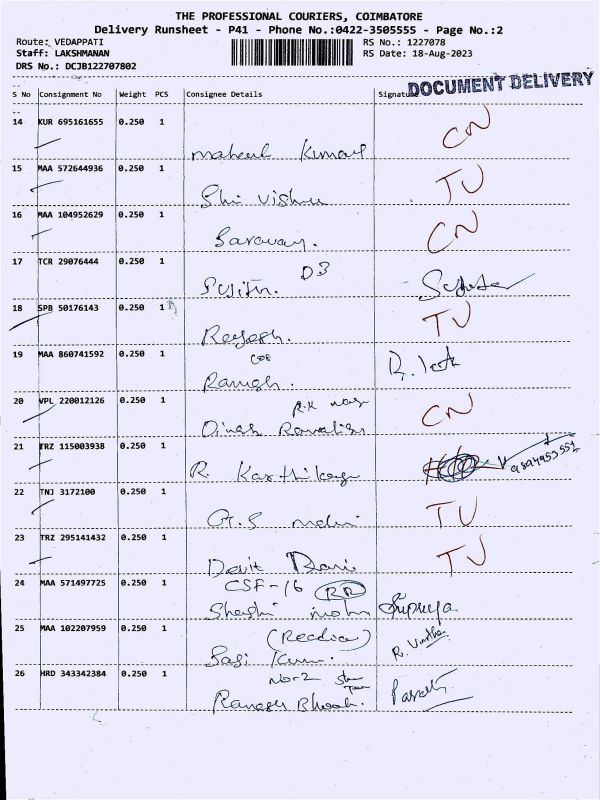 THE PROFESSIONAL COURIERS, COIMBATORE
Delivery Runsheet - P41 - Phone No.:0422-3505555 - Page No.:2
Route: VEDAPPATI
RS No.: 1227078
Staff: LAKSHMANAN
RS Date: 18-Aug-2023
DRS No.: DCJB122707802
DOCUMENT DELIVERY
S No Consignment No Weight PCS Consignee Details Signature
14 KUR 695161655 0.250 1 CN
Kumar
15 MAA 572644936 0.250 1 TU
Shri Vishnu
16 MAA 104952629 0.250 1 CN
Saravan.
17 TCR 29076444 0.250 1 D3
Sujith.
18 SPB 50176143 0.250 1 TU
19 MAA 860741592 0.250 1
Ramesh.
20 VPL 220012126 0.250 1 CN
Dinesh
21 TRZ 115003938 0.250 1
R. Karthikeya
22 TNJ 3172100 0.250 1 TU
G.S
23 TRZ 295141432 0.250 1 TU
24 MAA 571497725 0.250 1 CSF-16 RR
Supriya
25 MAA 102207959 0.250 1
26 HRD 343342384 0.250 1 No-2
Ramesh